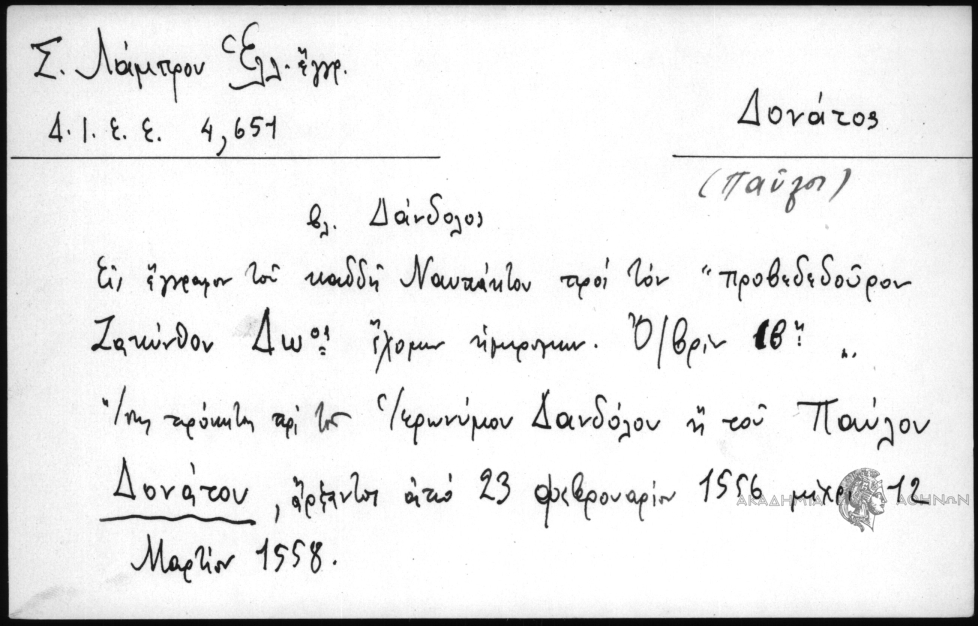 Σ. Λάμπρου Ἑλλ. ἔγγρ.
Δ. Ι. Ε. Ε. 4,651
Δονάτος
(Παῦλος)
βλ. Δάνδολος
Εἰς ἔγγραφον τοῦ καδδῆ Ναυπάκτου πρὸς τὸν "προβεδεδοῦρον
Ζακύνθου ἔχομεν 
Ἴσως πρόκειται περὶ τοῦ Ἱερωνύμου Δανδόλου ἢ τοῦ Παύλου
Δονάτου, ἄρξαντος ἀπό 23 Φεβρουαρίου 1556 μέχρι 12
Μαρτίου 1558.
ΑΚΑΔΗΜΙΑ ΑΘΗΝΩΝ